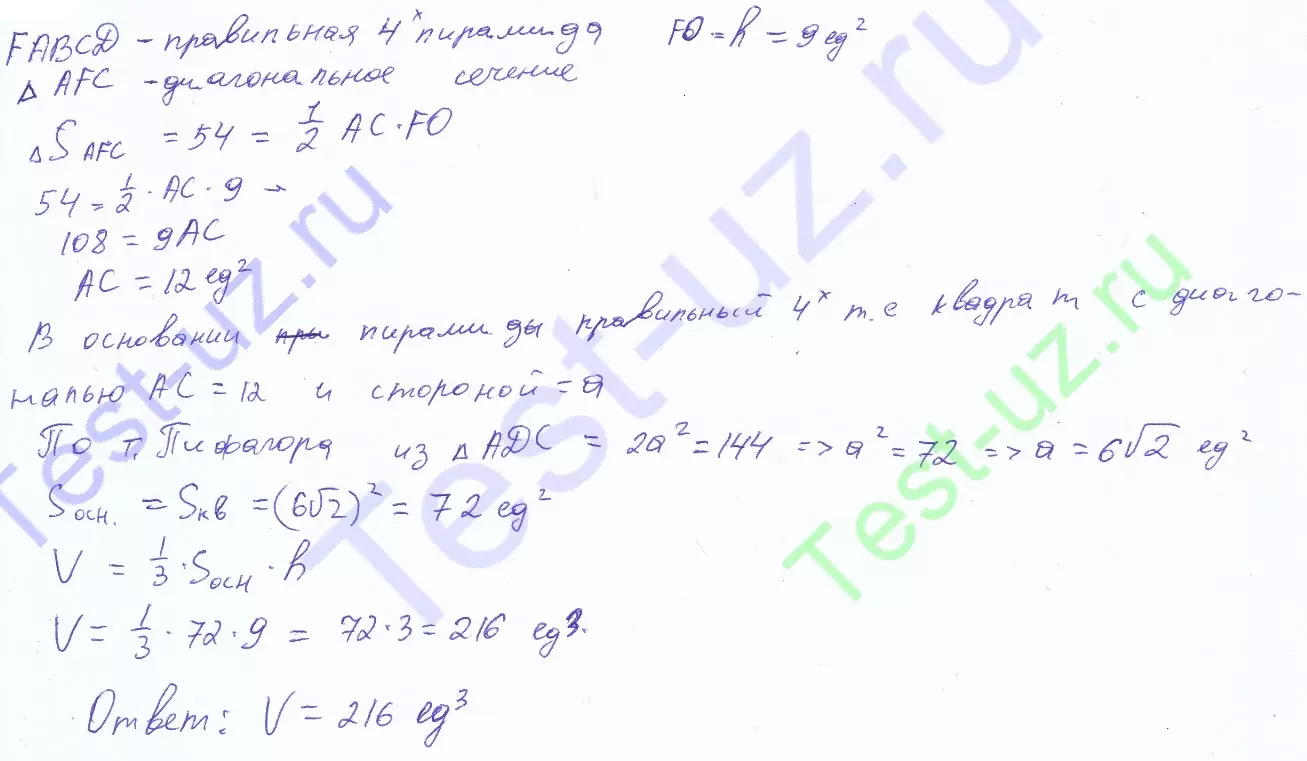 FABCD - правильная 4х пирамида FO = h = 9 ед²
△ AFC - диагональное сечение
△S AFC = 54 = 1/2 AC · FO
54 = 1/2 · AC · 9 →
108 = 9AC
AC = 12 ед²
В основании при пирамиды правильный 4х т.е квадрат с диагo-
налью AC = 12 и стороной = a
По т. Пифагора из △ ADC = 2a² = 144 => a² = 72 => a = 6√2 ед²
Sосн. = Sкв = (6√2)² = 72 ед²
V = 1/3 · Sосн · h
V = 1/3 · 72 · 9 = 72 · 3 = 216 ед³.
Ответ: V = 216 ед³
Test-uz.ru
Test-uz.ru
Test-uz.ru